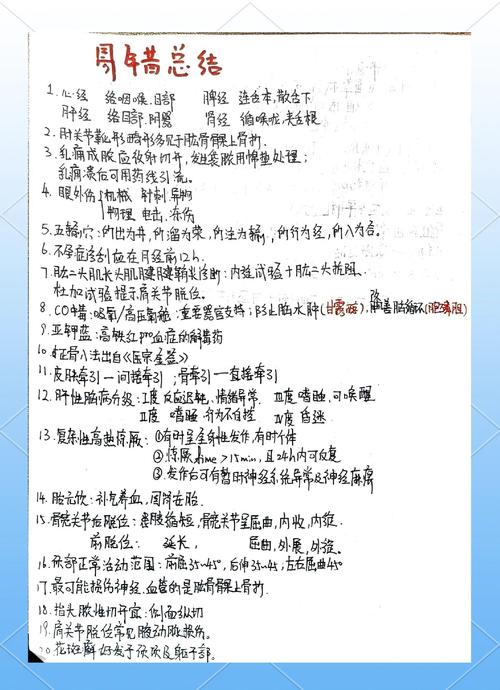 周年昔总结
1. 心经 络咽喉.目部 脾经 连舌本,散舌下
肝经 络目部.阴器 肾经 循喉咙,夹舌根
2. 肘关节靴形畸形多见于肱骨髁上骨折.
3. 乳痈成脓应放射切开,处理;
乳痈溃后可用药线引流。
4. 眼外伤 机械 针刺 异物
物理 电击,冻伤
5. 五输穴: 所出为井,所溜为荥,所注为输,所行为经,所入为合。
6. 不孕症诊刮应在月经前12h.
7. 肱二头肌长头肌腱诊断: 内旋试验+肱二头抗阻.
杜加试验提示肩关节脱位。
8. CO中毒: 吸氧/高压氧舱; 重要器官支持; 防止脑水肿(甘露醇), 改善脑
9. 亚甲蓝: 高铁红pro血症的解毒药
10. 正骨八法出自《医宗金鉴》
11. 皮肤牵引—间接牵引; 骨牵引—直接牵引
12. 肝性脑病分级: I度 反应迟钝、情绪异常 III度 嗜睡,可唤醒
II度 嗜睡 行为不自控 IV度 昏迷
13. 复杂性高热惊厥: ①有时呈发作,有时个体
②惊厥time>15min, 且24h内可反复
③发作后可有暂时神经系统异常及神经麻痹
14. 胎元饮: 补气养血,固肾安胎。
15. 髋关节后脱位: 患肢缩短,髋关节呈屈曲,内收,内旋.
前脱位: 延长, 屈曲,外展,外旋。
16. 颈部正常活动范围: 前屈35~45°, 后伸35~45; 左右屈曲45°
17. 最可能损伤神经.血管的是肱骨髁上骨折.
18. 指头脓性切开宜: 侧面纵切
19. 肩关节脱位常见腋动脉损伤。
20. 花斑癣 好发于颈项及躯干部。